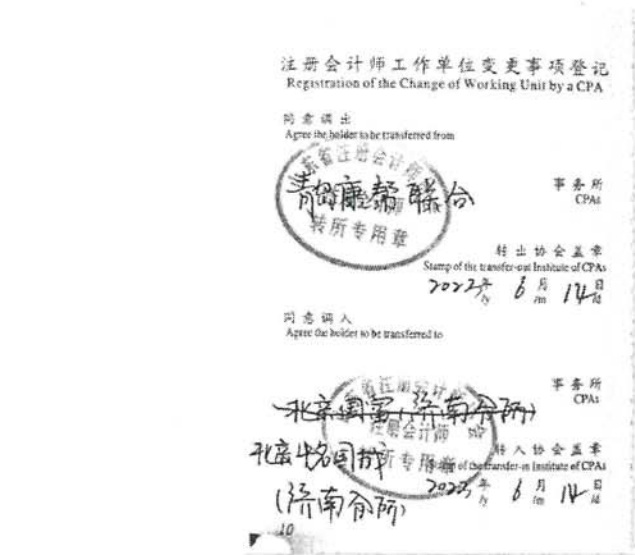 注册会计师工作单位变更事项登记
Registration of the Change of Working Unit by a CPA
同意调出
Agree the holder to be transferred from
青岛康帮联合
事务所
CPAs
转所专用章
转出协会盖章
Stamp of the transfer-out Institute of CPAs
2022年 6月 14日
/y /m /d
同意调入
Agree the holder to be transferred to
北京国富(济南分所)
事务所
CPAs
注册会计师
北京中名国成
转入协会盖章
of the transfer-in Institute of CPAs
(济南分所)
2022年 6月 14日
/y /m /d
10